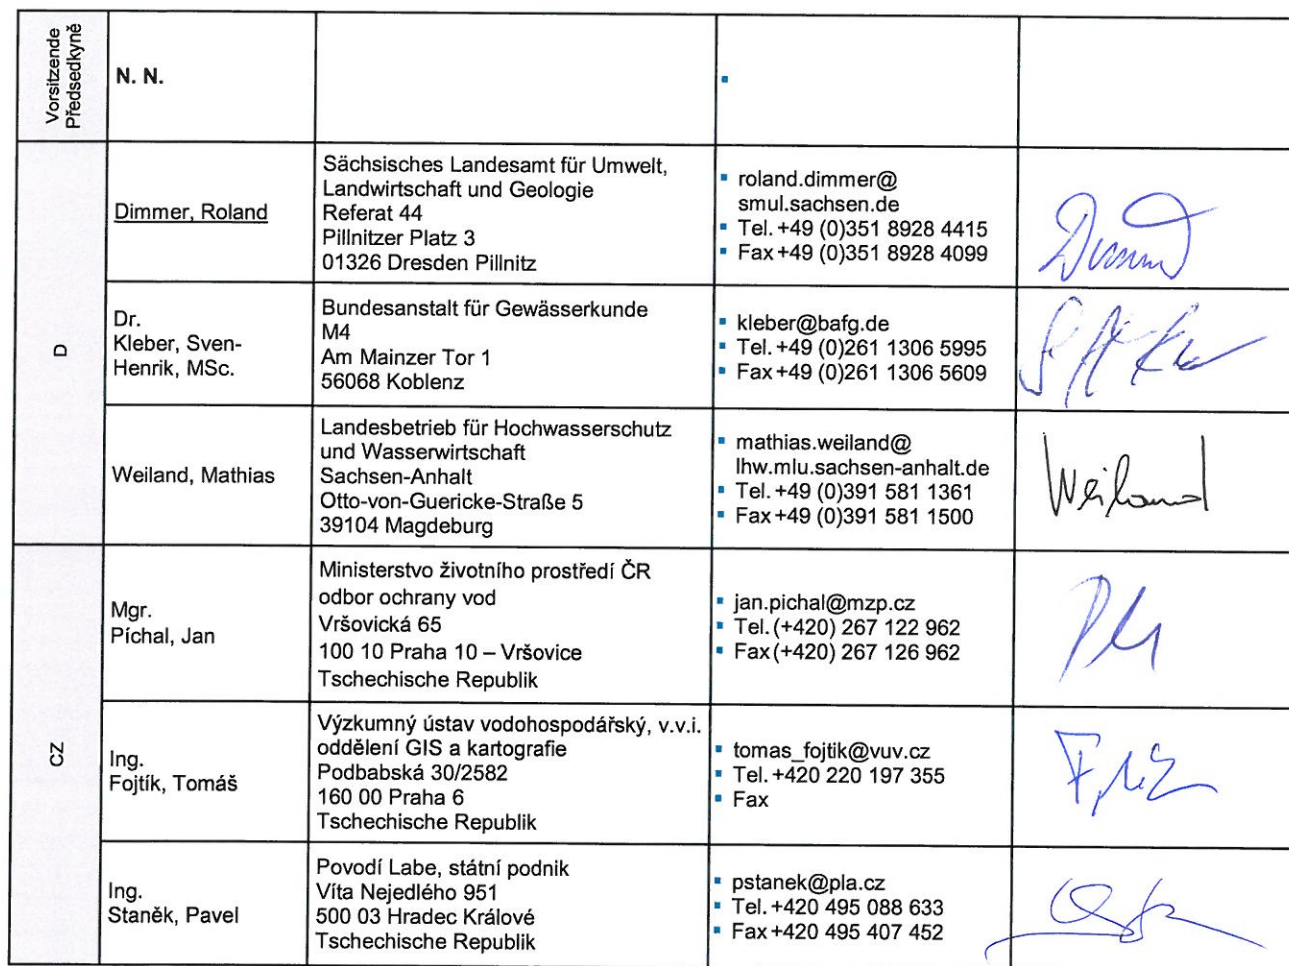 Vorsitzende
Předsedkyně
N. N.
D
Dimmer, Roland
Sächsisches Landesamt für Umwelt,
Landwirtschaft und Geologie
Referat 44
Pillnitzer Platz 3
01326 Dresden Pillnitz
roland.dimmer@
smul.sachsen.de
Tel. +49 (0)351 8928 4415
Fax +49 (0)351 8928 4099
Dr.
Kleber, Sven-
Henrik, MSc.
Bundesanstalt für Gewässerkunde
M4
Am Mainzer Tor 1
56068 Koblenz
kleber@bafg.de
Tel. +49 (0)261 1306 5995
Fax +49 (0)261 1306 5609
Weiland, Mathias
Landesbetrieb für Hochwasserschutz
und Wasserwirtschaft
Sachsen-Anhalt
Otto-von-Guericke-Straße 5
39104 Magdeburg
mathias.weiland@
lhw.mlu.sachsen-anhalt.de
Tel. +49 (0)391 581 1361
Fax +49 (0)391 581 1500
Weiland
CZ
Mgr.
Píchal, Jan
Ministerstvo životního prostředí ČR
odbor ochrany vod
Vršovická 65
100 10 Praha 10 – Vršovice
Tschechische Republik
jan.pichal@mzp.cz
Tel. (+420) 267 122 962
Fax (+420) 267 126 962
Ing.
Fojtík, Tomáš
Výzkumný ústav vodohospodářský, v.v.i.
oddělení GIS a kartografie
Podbabská 30/2582
160 00 Praha 6
Tschechische Republik
tomas_fojtik@vuv.cz
Tel. +420 220 197 355
Fax
Ing.
Staněk, Pavel
Povodí Labe, státní podnik
Víta Nejedlého 951
500 03 Hradec Králové
Tschechische Republik
pstanek@pla.cz
Tel. +420 495 088 633
Fax +420 495 407 452